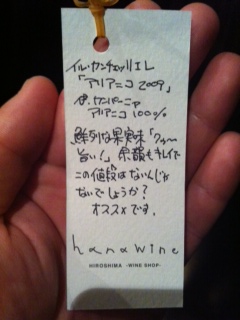 イル・カンチェッリエレ
「アリアニコ 2009」
伊・カンパーニァ
アリアニコ 100%
鮮烈な果実味「クゥ〜
旨い!」余韻もキレイで
この値段はないんじゃ
ないでしょうか?
オススメです。
hanawine
HIROSHIMA -WINE SHOP-